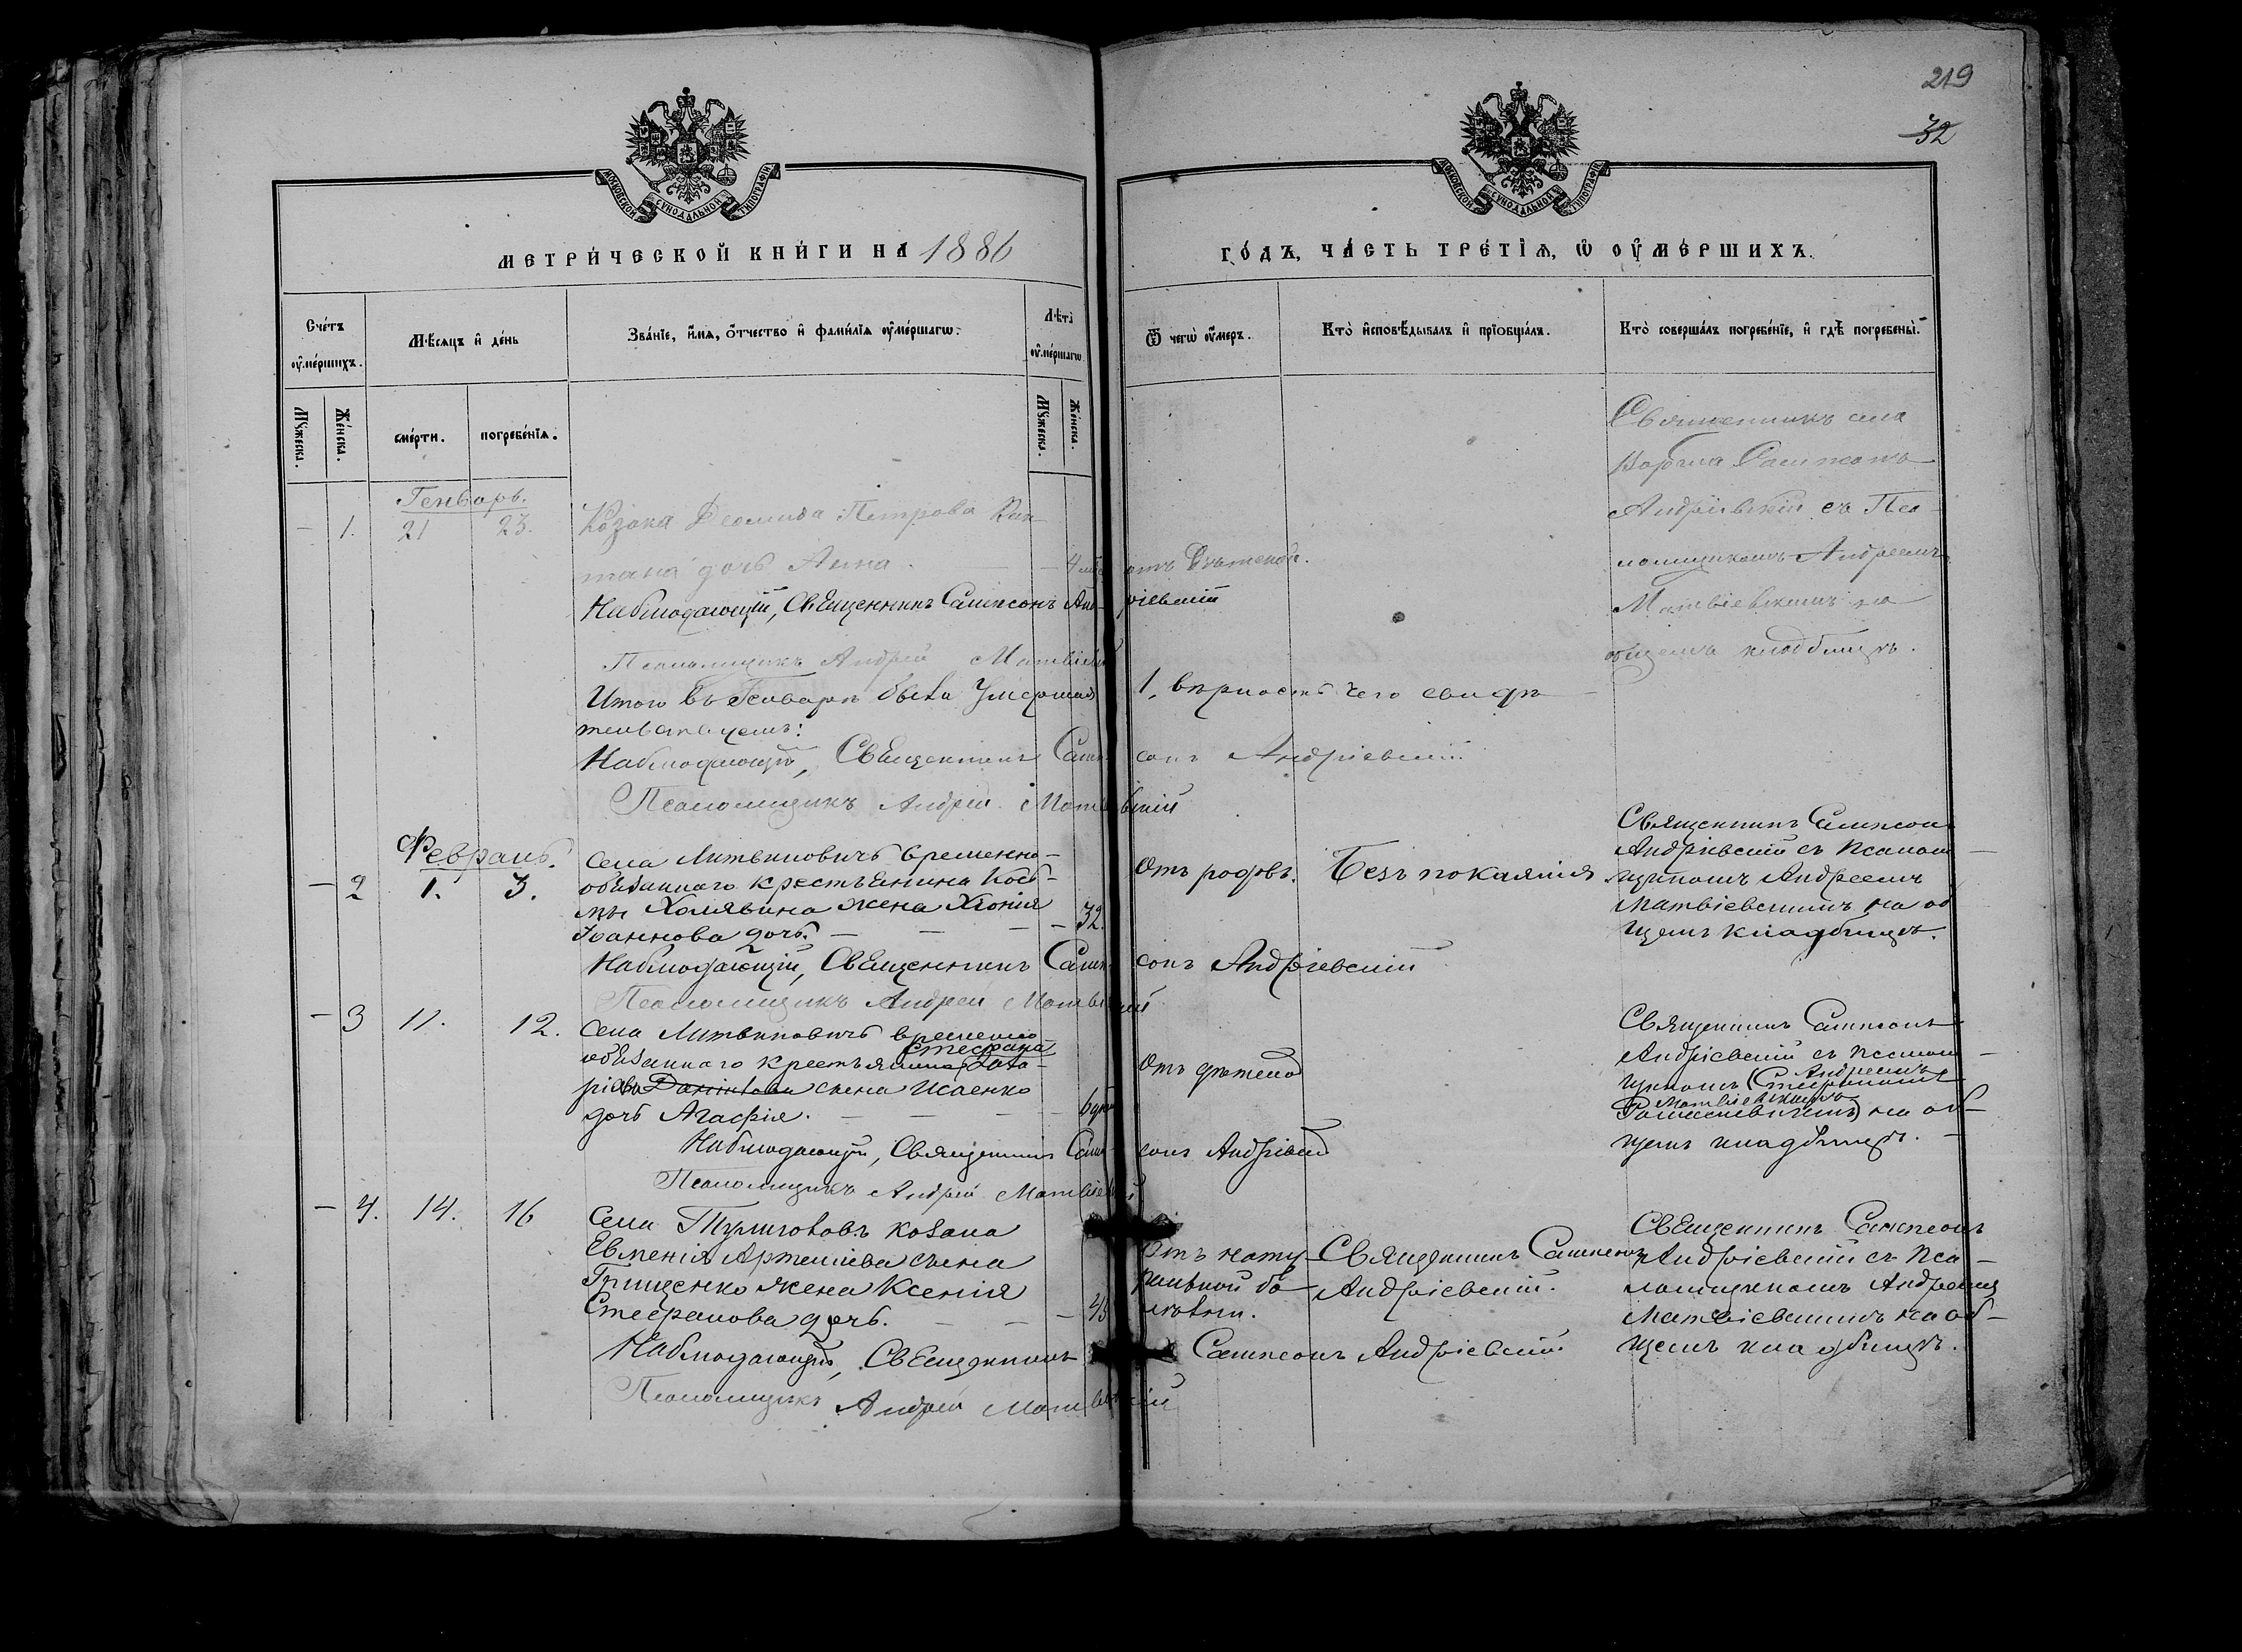 219
32
МОСКОВСКОЙ СѴНОДАЛЬНОЙ ТИПОГРАФІИ
МОСКОВСКОЙ СѴНОДАЛЬНОЙ ТИПОГРАФІИ
МЕТРИ́ЧЕСКОЙ КНИ́ГИ НА 1886
ГО́ДЪ, ЧА́СТЬ ТРЕ́ТІѦ, Ѡ҆ ОУ҆МЕ́РШИХЪ.
Сче́тъ оу҆ме́ршихъ.
Мѣ́сяцъ и҆ де́нь
Зва́ніе, и҆́мѧ, ѻ҆́тчество и҆ фами́ліѧ оу҆ме́ршагѡ.
Лѣ́тъ оу҆ме́ршагѡ
Ѿ чегѡ̀ оу҆́меръ.
Кто̀ и҆сповѣ́дывалъ и҆ прїобща́лъ.
Кто̀ соверша́лъ погребе́ніе, и҆ гдѣ̀ погребены̀.
Мꙋ́жеска.
Же́нска.
сме́рти.
погребе́ніѧ.
Мꙋ́жеска.
Же́нска.
Генварь.
– 1. 21 23.
Козака Деомида Петрова
дочь Анна. – 4
отъ
Священникъ села
Сампсонъ
Андріевскій съ Пса-
ломщикомъ Андреемъ
Матвіевскимъ на
общемъ кладбищѣ.
Наблюдающій, Священникъ Сампсонъ Андріевскій
Псаломщикъ Андрей Матвіевскій
Итого въ Генварѣ была Умершая 1, вѣрность чего свидѣ-
тельствуемъ:
Наблюдающій, Священникъ Сампсонъ Андріевскій
Псаломщикъ Андрей Матвіевскій
Февраль.
– 2 1. 3.
Села Литвиновичъ временно-
обязаннаго крестьянина Кось-
мы Холявина жена Хіонія
Іоаннова дочь. – – – – 32.
Отъ родовъ.
Безъ покаянія
Священникъ Сампсонъ
Андріевскій съ Псалом
щикомъ Андреемъ
Матвіевскимъ на об
щемъ кладбищѣ.
Наблюдающій, Священникъ Сампсонъ Андріевскій
Псаломщикъ Андрей Матвіевскій
– 3 11. 12.
Села Литвиновичъ временно
Стефана
обязаннаго крестьянина
Данилова сына Исаенко
дочь Агафія. – – – – 6
Отъ
Священникъ Сампсонъ
Андріевскій съ Псалом
Андреемъ
щикомъ (Стефаномъ
Матвіевскимъ
на об-
щемъ кладбищѣ.
Наблюдающій, Священникъ Сампсонъ Андріевскій
Псаломщикъ Андрей Матвіевскій
– 4. 14. 16
Села Тулиголовъ козака
Евменія Артеміева сына
Грищенко жена Ксенія
Стефанова дочь. – – –
Отъ нату-
ральной бо-
лѣзни.
Священникъ Сампсонъ
Андріевскій.
Священникъ Сампсонъ
Андріевскій съ Пса-
ломщикомъ Андреемъ
Матвіевскимъ на об-
щемъ кладбищѣ.
Наблюдающій, Священникъ Сампсонъ Андріевскій
Псаломщикъ Андрей Матвіевскій